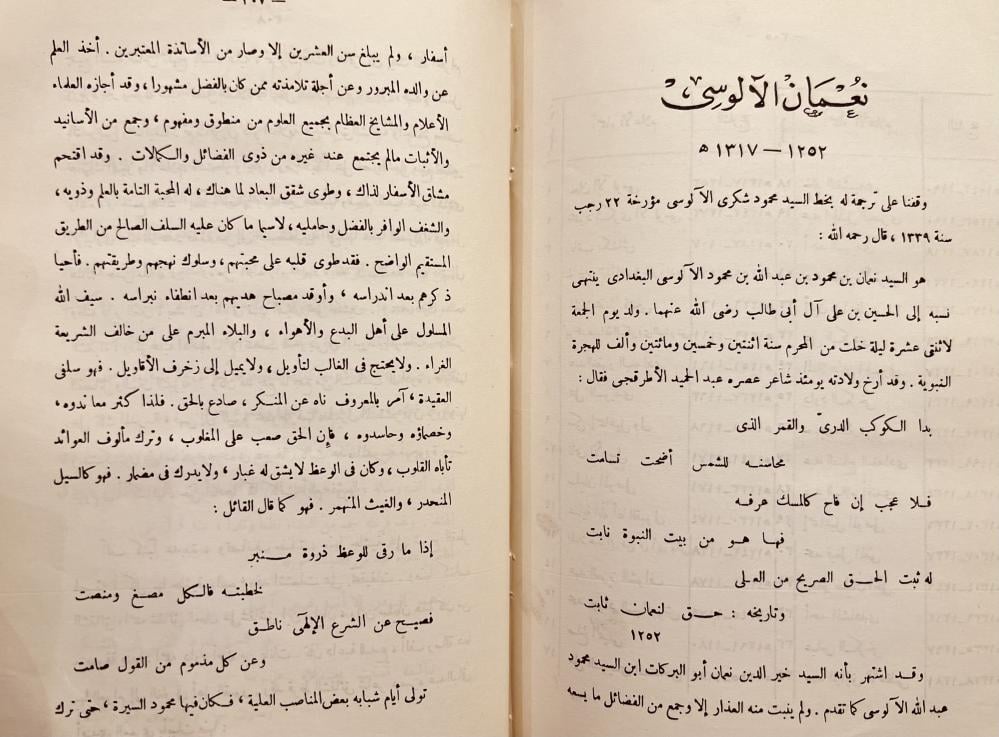 نعمان الآلوسي
١٢٥٢ — ١٣١٧ ه
وقفنا على ترجمة له بخط السيد محمود شكرى الآلوسى مؤرخة ٢٢ رجب
سنة ١٣٣٩ ، قال رحمه الله :
هو السيد نعمان بن محمود بن عبد الله بن محمود الآلوسى البغدادى ينتهى
نسبه إلى الحسين بن على آل أبى طالب رضى الله عنهما . ولد يوم الجمعة
لاثنتى عشرة ليلة خلت من المحرم سنة اثنتين وخمسين ومائتين وألف للهجرة
النبوية . وقد أرخ ولادته يومئذ شاعر عصره عبد الحميد الأطرقجى فقال :
بدا الكوكب الدرىّ والقمر الذى
محاسنه للشمس أضحت تسامت
فلا عجب إن فاح كالمسك عرفه
فها هو من بيت النبوة نابت
له ثبت الحق الصريح من العلى
وتاريخه : حق لنعمان ثابت
١٢٥٢
وقد اشتهر بأنه السيد خير الدين نعمان أبو البركات ابن السيد محمود
عبد الله الآلوسى كما تقدم . ولم ينبت منه العذار إلا وجمع من الفضائل ما يسعه
أسفار ، ولم يبلغ سن العشرين إلا وصار من الأساتذة المعتبرين . أخذ العلم
عن والده المبرور وعن أجلة تلامذته ممن كان بالفضل مشهورا ، وقد أجازه العلماء
الأعلام والمشايخ العظام بجميع العلوم من منطوق ومفهوم ، وجمع من الأسانيد
والأثبات مالم يجتمع عند غيره من ذوى الفضائل والكمالات . وقد اقتحم
مشاق الأسفار لذاك ، وطوى شقق البعاد لما هناك ، له المحبة التامة بالعلم وذويه ،
والشغف الوافر بالفضل وحامليه ، لاسيما ما كان عليه السلف الصالح من الطريق
المستقيم الواضح . فقد طوى قلبه على محبتهم ، وسلوك نهجهم وطريقتهم . فأحيا
ذكرهم بعد اندراسه ، وأوقد مصباح هديهم بعد انطفاء نبراسه . سيف الله
المسلول على أهل البدع والأهواء ، والبلاء المبرم على من خالف الشريعة
الغراء . ولايحتج فى الغالب لتأويل ، ولايميل إلى زخرف الأقاويل . فهو سلفى
العقيدة ، آمر بالمعروف ناه عن المنكر ، صادع بالحق . فلذا كثر معاندوه ،
وخصماؤه وحاسدوه ، فإن الحق صعب على المغلوب ، وترك مألوف العوائد
تأباه القلوب ، وكان فى الوعظ لايشق له غبار ، ولا يدرك فى مضمار . فهو كالسيل
المنحدر ، والغيث المنهمر . فهو كما قال القائل :
إذا ما رقى للوعظ ذروة منبر
لخطبته فالكل مصغ ومنصت
فصيح عن الشرع الإلهى ناطق
وعن كل مذموم من القول صامت
تولى أيام شبابه بعض المناصب العلية ، فكان فيها محمود السيرة ، حتى ترك